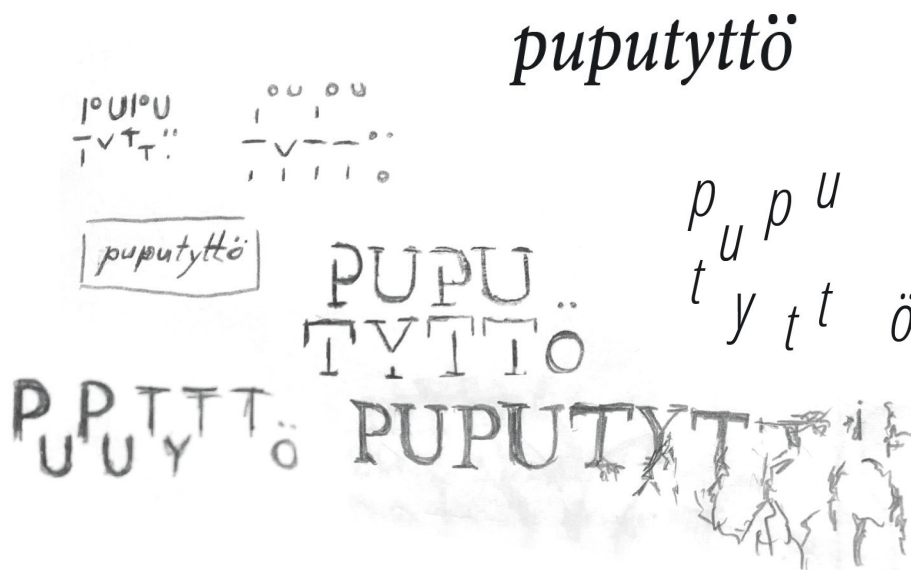 puputyttö
PUPU
TYTTÖ
PUPU
TYTTÖ
puputyttö
PUPU
TYTTÖ
pupu
tyttö
PUPUTYTTTÖ
PUPUTYTTÖ